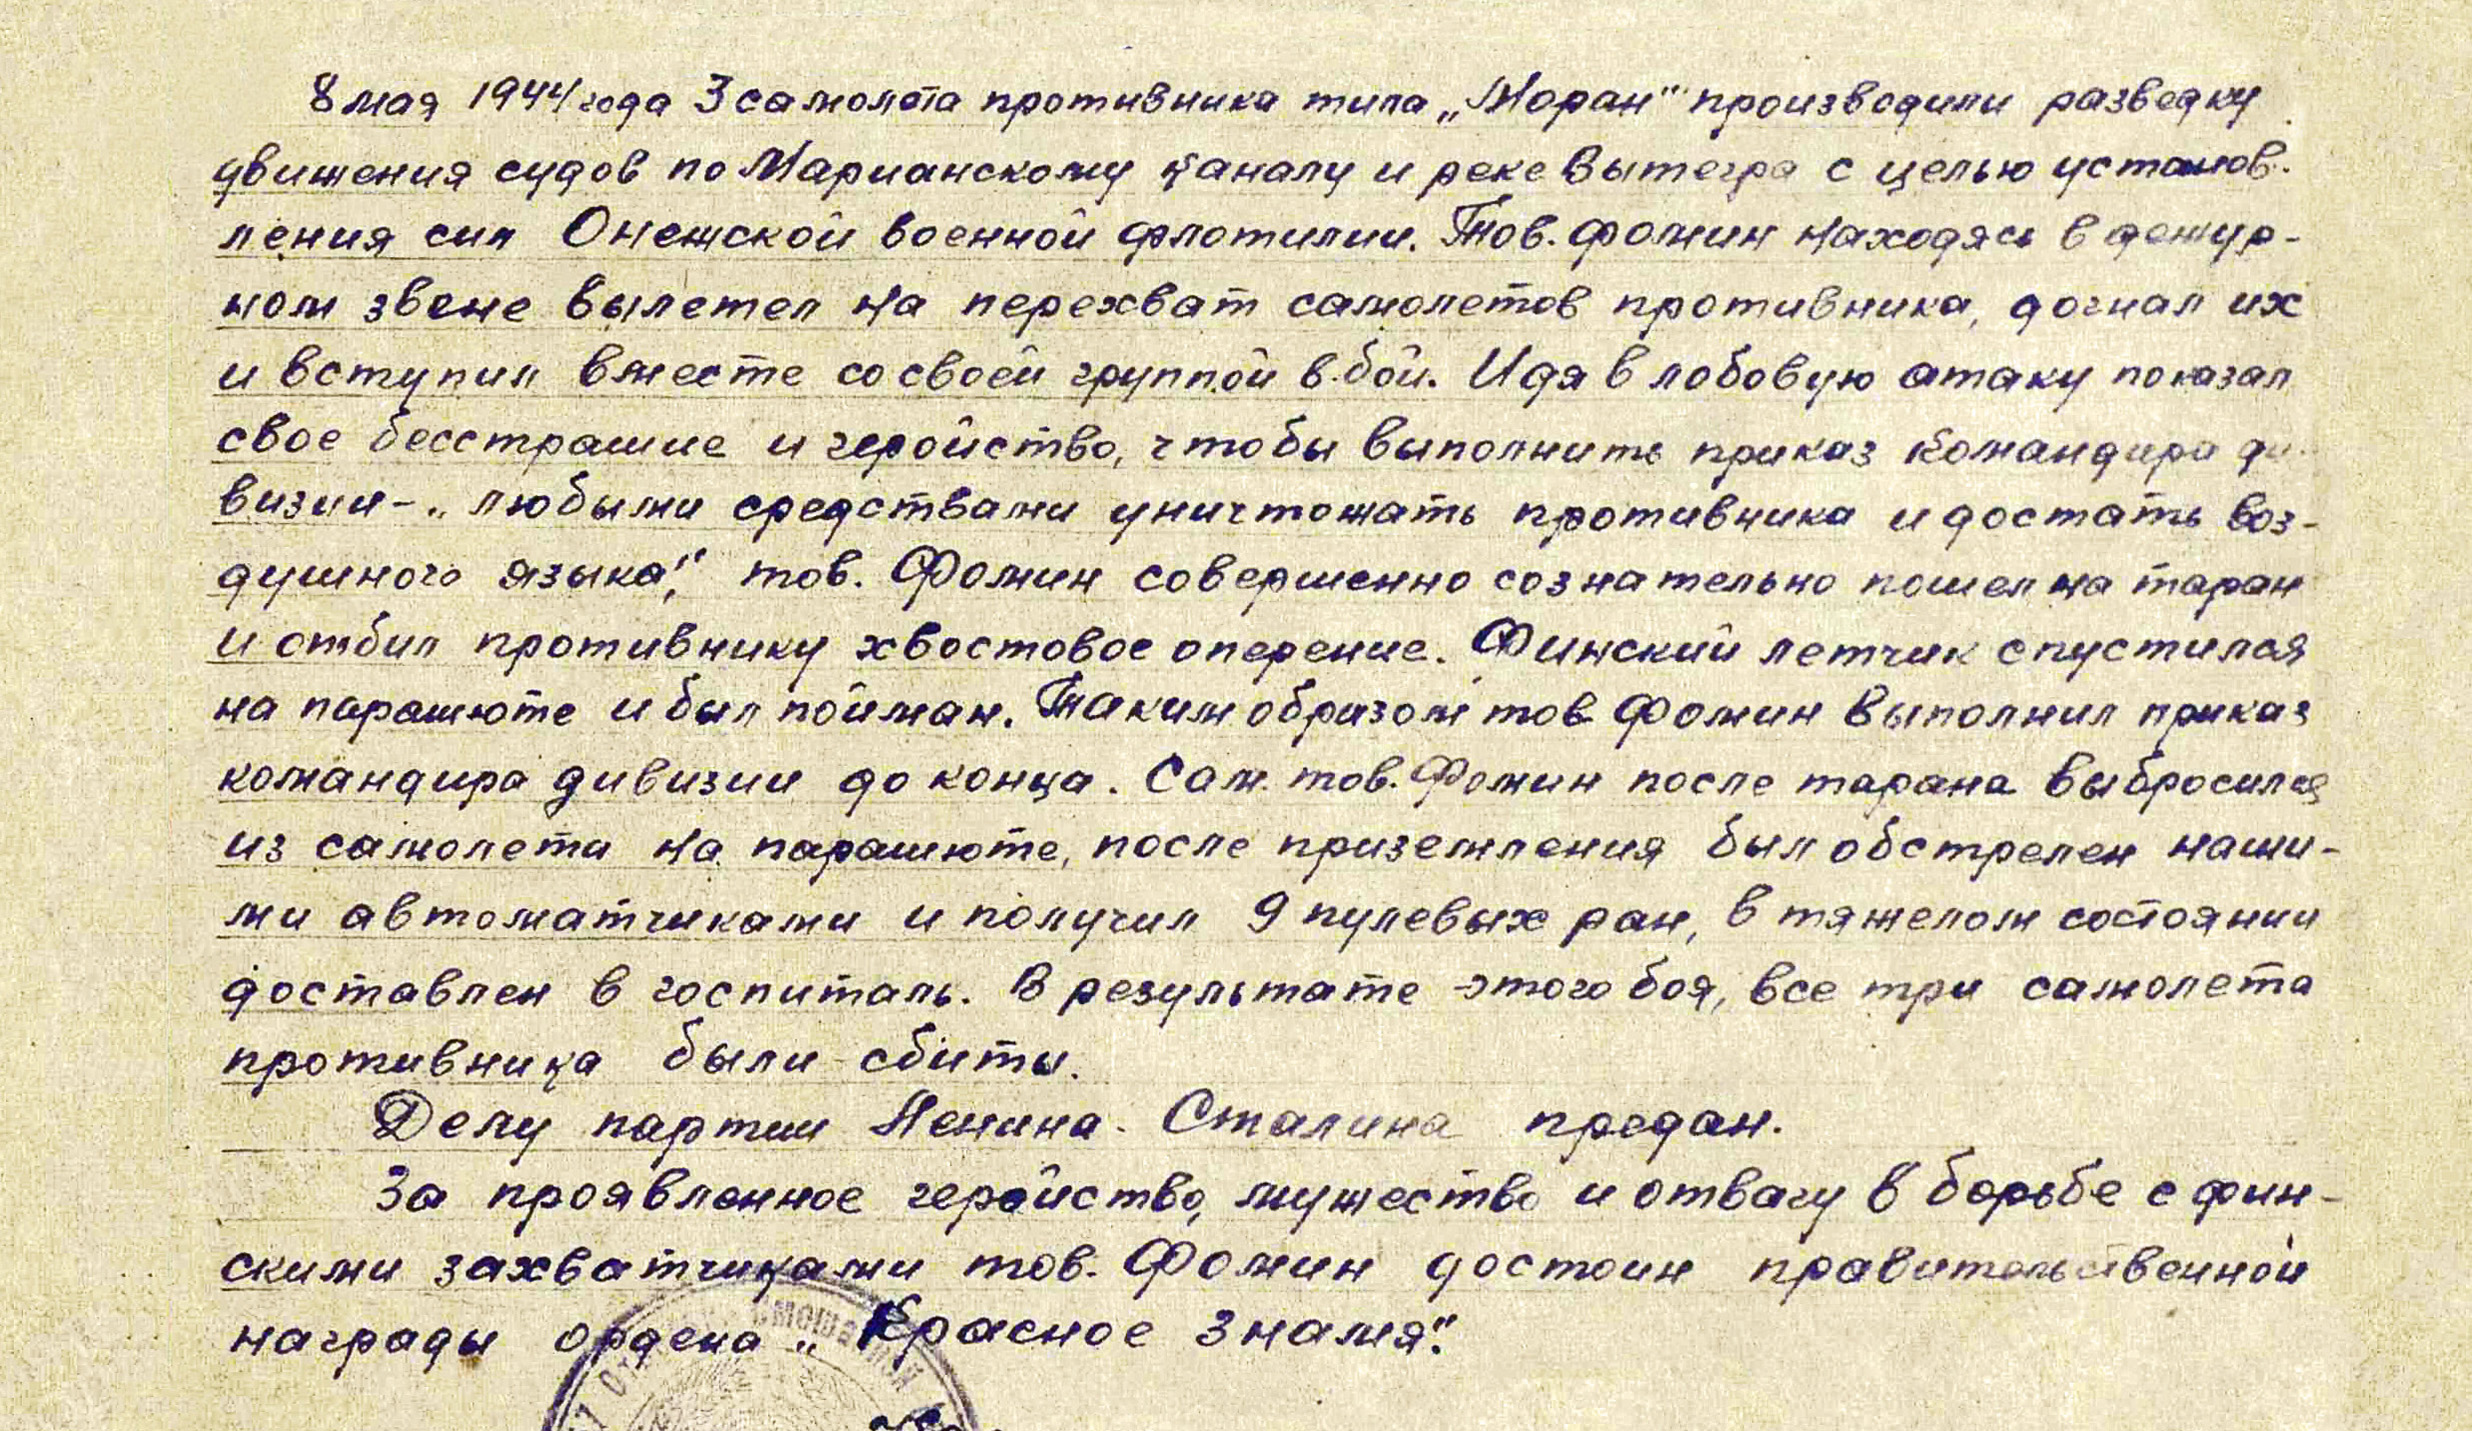 8 мая 1944 года 3 самолета противника типа „Моран" производили разведку
движения судов по Марианскому каналу и реке Вытегра с целью установ-
ления сил Онежской военной флотилии. Тов. Фомин находясь в дежур-
ном звене вылетел на перехват самолетов противника, догнал их
и вступил вместе со своей группой в бой. Идя в лобовую атаку показал
свое бесстрашие и геройство, чтобы выполнить приказ командира ди-
визии - „любыми средствами уничтожать противника и достать воз-
душного языка", тов. Фомин совершенно сознательно пошел на таран
и отбил противнику хвостовое оперение. Финский летчик спустился
на парашюте и был пойман. Таким образом тов Фомин выполнил приказ
командира дивизии до конца. Сам тов. Фомин после тарана выбросился
из самолета на парашюте, после приземления был обстрелен наши-
ми автоматчиками и получил 9 пулевых ран, в тяжелом состоянии
доставлен в госпиталь. В результате этого боя, все три самолета
противника были сбиты.
Делу партии Ленина - Сталина предан.
За проявленное геройство, мужество и отвагу в борьбе с фин-
скими захватчиками тов. Фомин достоин правительственной
награды ордена „Красное Знамя".